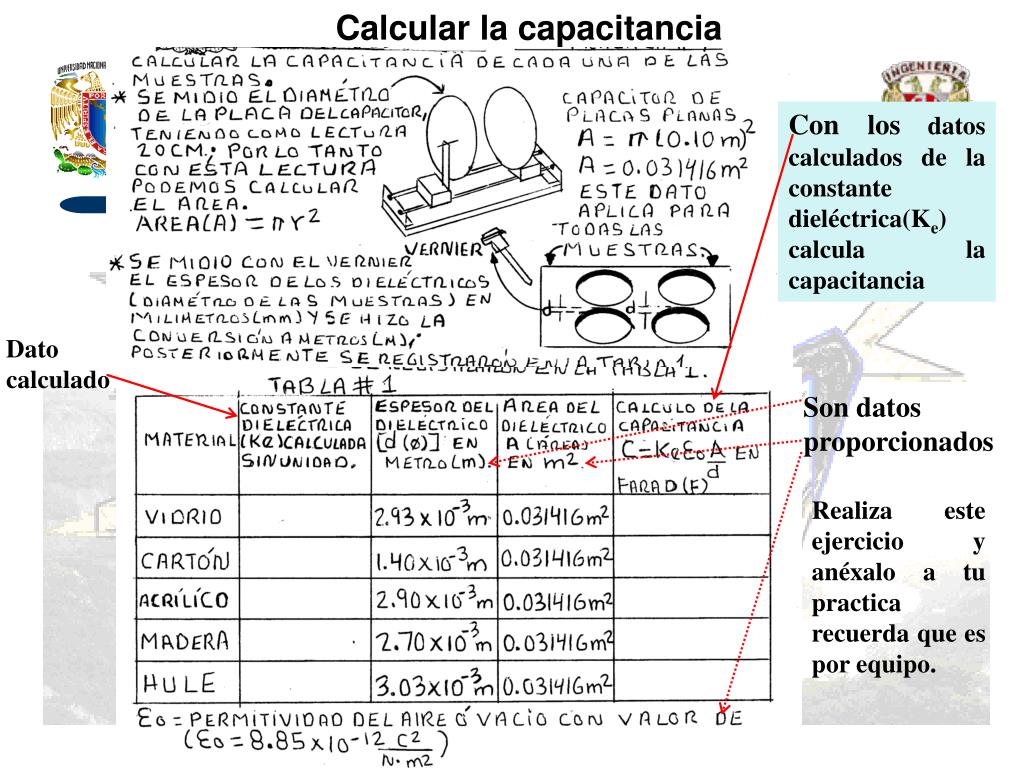 Calcular la capacitancia
CALCULAR LA CAPACITANCIA DE CADA UNA DE LAS
MUESTRAS.
* SE MIDIO EL DIAMÉTRO
DE LA PLACA DEL CAPACITOR,
TENIENDO COMO LECTURA
20CM.; POR LO TANTO
CON ÉSTA LECTURA
PODEMOS CALCULAR
EL AREA.
AREA(A) = πr²
CAPACITOR DE
PLACAS PLANAS
A = π(0.10m)²
A = 0.031416m²
ESTE DATO
APLICA PARA
TODAS LAS
MUESTRAS.
VERNIER
d
d
* SE MIDIO CON EL VERNIER
EL ESPESOR DE LOS DIELÉCTRICOS
(DIAMÉTRO DE LAS MUESTRAS) EN
MILIMETROS(mm) Y SE HIZO LA
CONVERSIÓN A METROS(M),;
POSTERIORMENTE SE REGISTRARÓN EN LA TABLA 1.
UNIVERSIDAD NACIONAL
INGENIERIA
Con los datos
calculados de la
constante
dieléctrica(Ke)
calcula la
capacitancia
Dato
calculado
TABLA # 1
MATERIAL
CONSTANTE
DIELÉCTRICA
(Ke)CALCULADA
SIN UNIDAD.
ESPESOR DEL
DIELÉCTRICO
[d(ø)] EN
METRO(m).
AREA DEL
DIELÉCTRICO
A (AREA)
EN m².
CALCULO DE LA
CAPACITANCIA
C=KeEo A/d EN
FARAD(F)
VIDRIO 2.93x10⁻³m 0.031416m²
CARTÓN 1.40x10⁻³m 0.031416m²
ACRÍLÍCO 2.90x10⁻³m 0.031416m²
MADERA 2.70x10⁻³m 0.031416m²
HULE 3.03x10⁻³m 0.031416m²
Eo = PERMITIVIDAD DEL AIRE Ó VACIO CON VALOR DE
(Eo = 8.85x10⁻¹² C²/N·m²)
Son datos
proporcionados
Realiza este
ejercicio y
anéxalo a tu
practica
recuerda que es
por equipo.